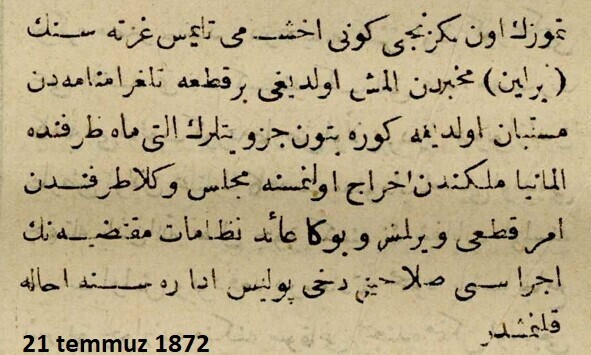 تموزك اون سكزنجى كونى اخشامى تايمس غزته سنك
(برلين) مخبرندن المش اولديغى برقطعه تلغرافنامه دن
مستبان اولديغنه كوره بتون جزويتلرك التى ماه ظرفنده
المانيا ملكندن اخراج اولنمسنه مجلس وكلا طرفندن
امر قطعى ويرلمش و بوكا عائد نظامات مقتضيه نك
اجراسى صلاحيتى دخى پوليس اداره سنه احاله
قلنمشدر
21 temmuz 1872